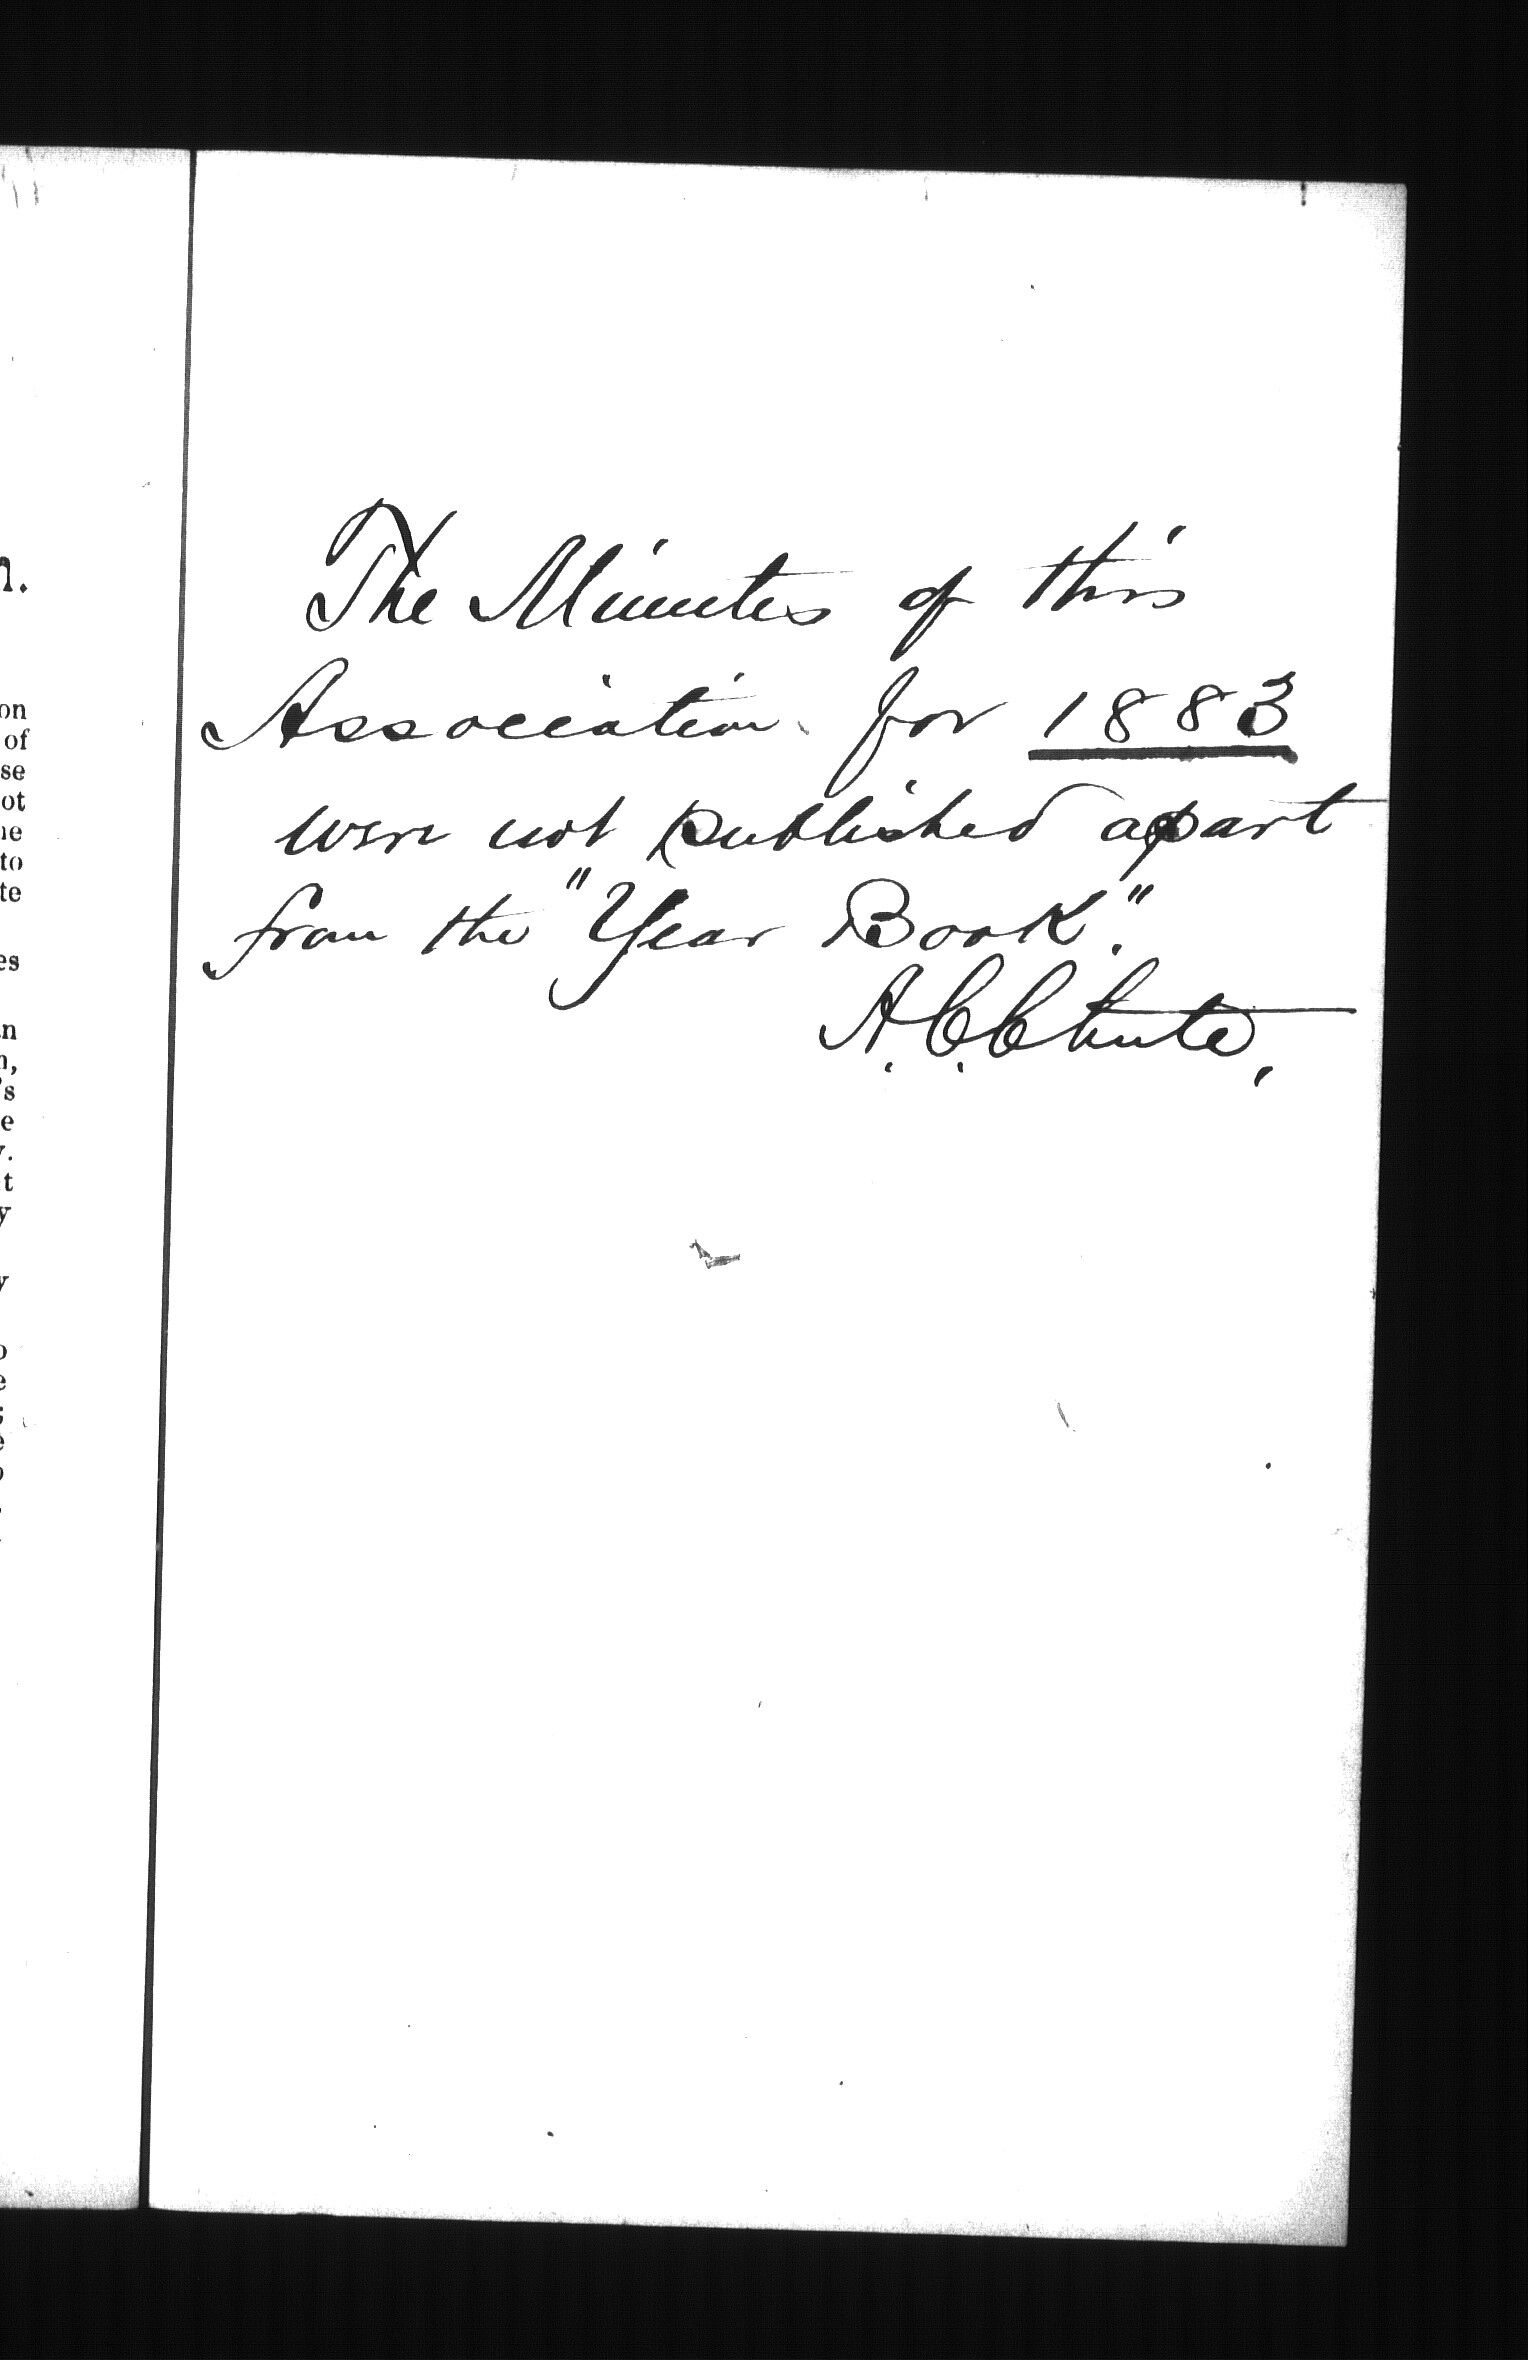 The Minutes of this
Association for 1883
were not published apart
from the "Year Book".
A. C. Chute,
n.
on
of
se
ot
ne
to
te
es
n,
's
e
y.
t
y
y
e
e